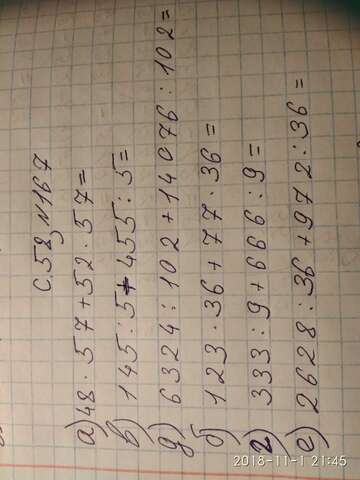 с. 58, N167
а) 48 · 57 + 52 · 57 =
в) 145 : 5 + 455 : 5 =
д) 6324 : 102 + 14076 : 102 =
б) 123 · 36 + 77 · 36 =
г) 333 : 9 + 666 : 9 =
е) 2628 : 36 + 972 : 36 =
2018-11-1 21:45